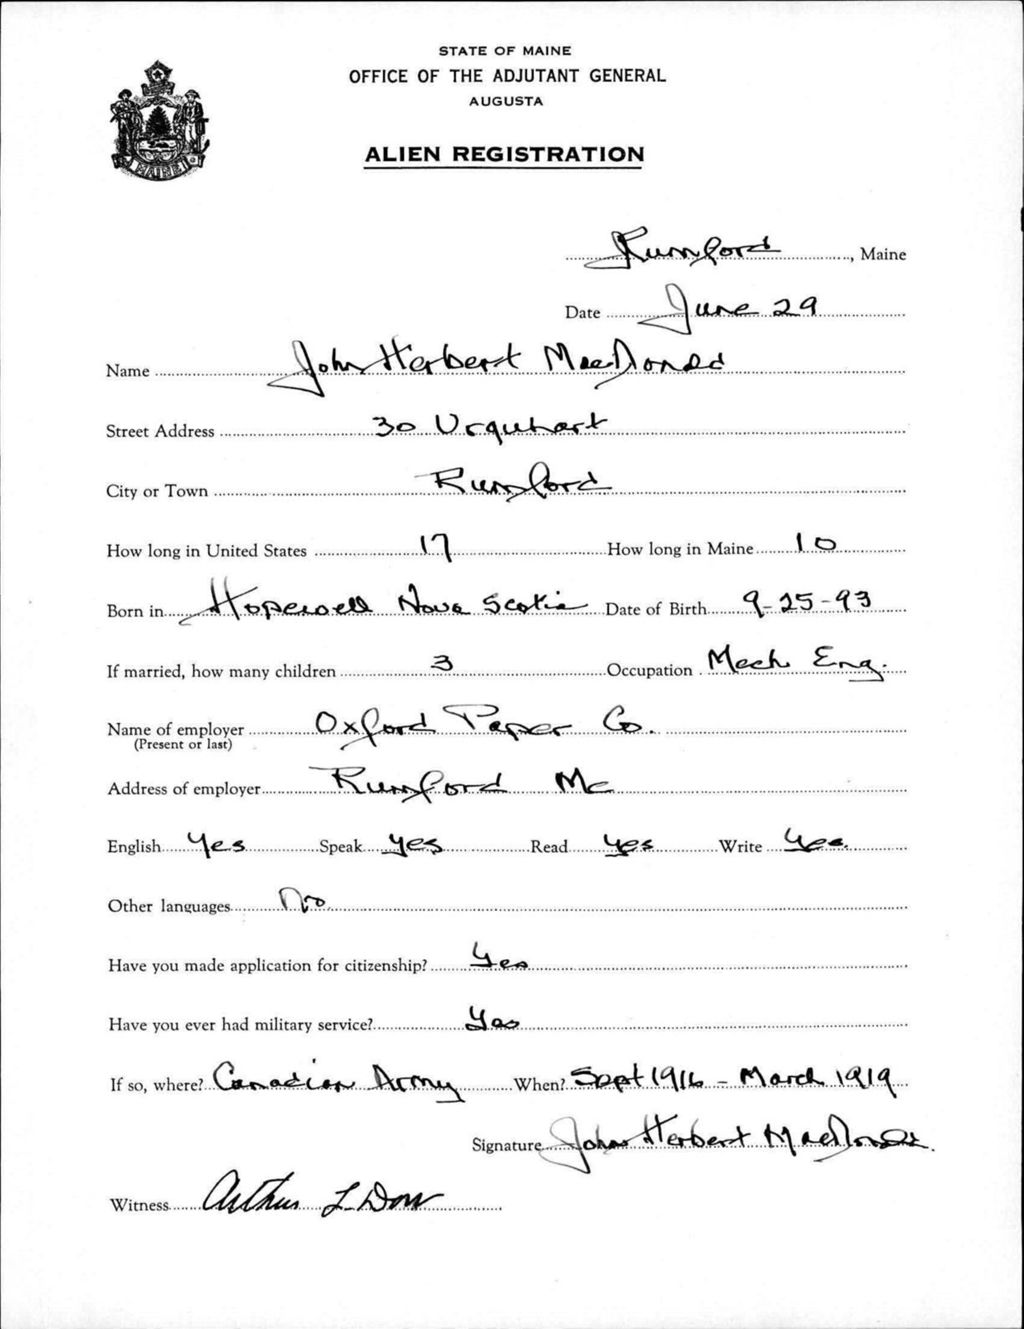 STATE OF MAINE
OFFICE OF THE ADJUTANT GENERAL
AUGUSTA
ALIEN REGISTRATION
MAINE
Rumford, Maine
Date June 29
Name John Herbert MacDonald
Street Address 30 Urquhart
City or Town Rumford
How long in United States 17 How long in Maine 10
Born in Hopewell Nova Scotia Date of Birth 9-25-93
If married, how many children 3 Occupation Mech. Eng.
Name of employer Oxford Paper Co.
(Present or last)
Address of employer Rumford Me
English Yes Speak yes Read yes Write Yes.
Other languages No
Have you made application for citizenship? Yes
Have you ever had military service? Yes
If so, where? Canadian Army When? Sept 1916 - March 1919
Signature John Herbert MacDonald.
Witness Arthur L. Dow